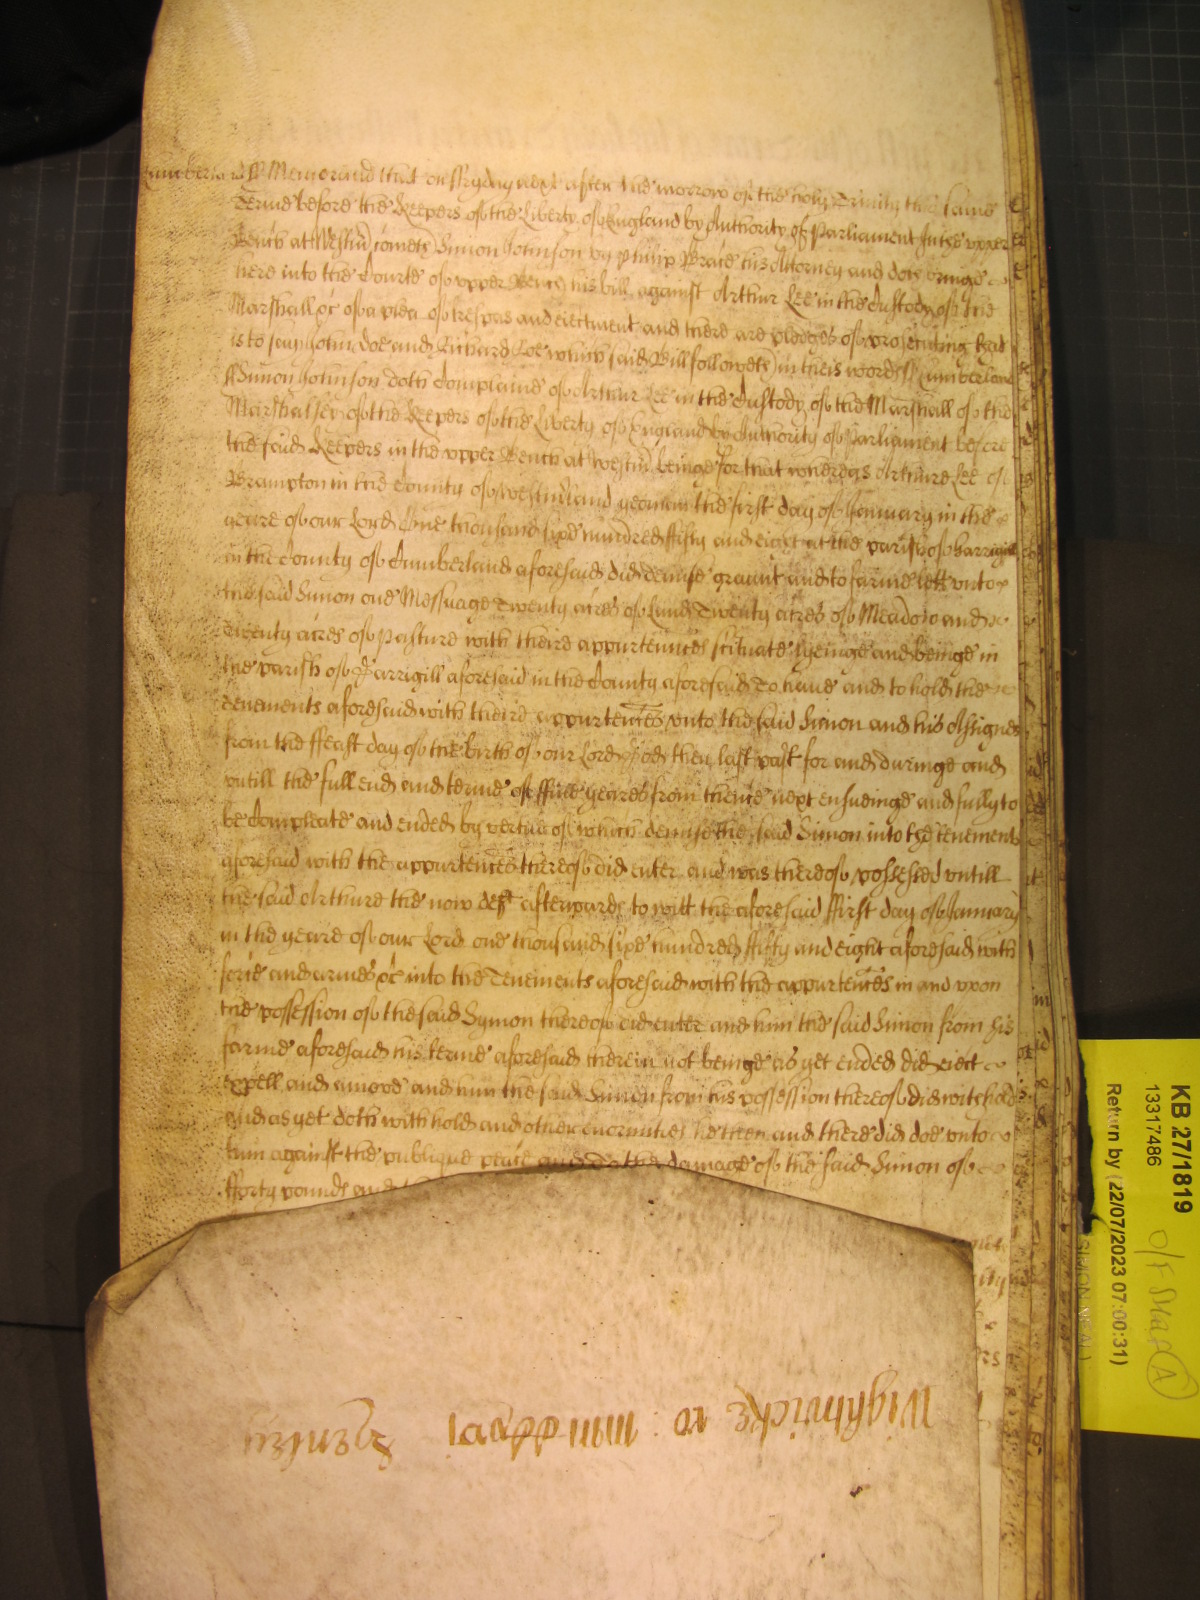 Cumberland ss Memorand that on ffryday next after the morrow of the holy Trinity this same
Terme before the Keepers of the Liberty of England by Authority of Parliament In the upper
Bench at Westm cometh Simon Johnson by Phillip Brace his Attorney and doth bringe
here into the Courte of upper Bench his bill against Arthur Lee in the Custody of the
Marshall &c of a plea of trespas and eiectment and there are pledges of prosecuting that
is to say John Doe and Richard Roe which said Bill followeth in theis words ss Cumberland
ss Simon Johnson doth Complaine of Arthur Lee in the Custody of the Marshall of the
Marshalsey of the Keepers of the Liberty of England by Authority of Parliament before
the said Keepers in the upper Bench at Westm beinge for that whereas Arthure Lee of
Brampton in the County of Westmland yeoman the first day of January in the
yeare of our Lord One thousand sixe hundred fifty and eight at the parish of Garrigill
in the County of Cumberland aforesaid did demise graunt and to farme lett unto
the said Simon one Messuage Twenty acres of Land Twenty acres of Meadow and
Twenty acres of Pasture with theire appurtennces scituate lyeinge and beinge in
the parish of Garrigill aforesaid in the County aforesaid To have and to hold the
tenements aforesaid with theire appurtences unto the said Simon and his Assignes
from the ffeast day of the birth of our Lord God then last past for and duringe and
untill the full end and terme of ffive yeares from thence next ensueinge and fully to
be Compleate and ended by vertue of which demise the said Simon into the tenements
aforesaid with the appurtences thereof did enter and was thereof possessed untill
the said Arthure the now deft afterwards to witt the aforesaid ffirst day of January
in the yeare of our Lord one thousand sixe hundred fifty and eight aforesaid with
force and armes &c into the Tenements aforesaid with the appurtences in and upon
the possession of the said Symon thereof did enter and him the said Simon from his
farme aforesaid his terme aforesaid therein not beinge as yet ended did eiect
expell and amove and him the said Simon from his possession thereof did withhold
And as yet doth withhold and other enormities he then and there did doe unto
him against the publique peace and to the damage of the said Simon of
fforty pounds and
Wightwicke ro: Mann &
KB 27/1819
13317486
Return by (22/07/2023 07:00:31)
SIMON NEAL
O/F SMap A